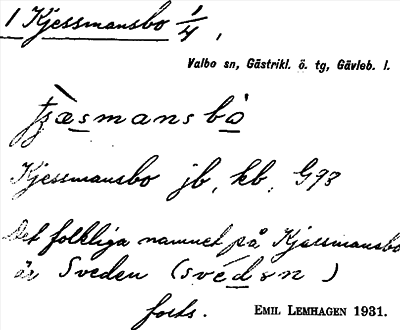 1 Kjessmansbo 1/4,
Valbo sn, Gästrikl. ö. tg, Gävleb. l.
Kjessmansbo jb, kb, G93
Det folkliga namnet på Kjessmansbo
är Sveden (svédən)
forts. EMIL LEMHAGEN 1931.